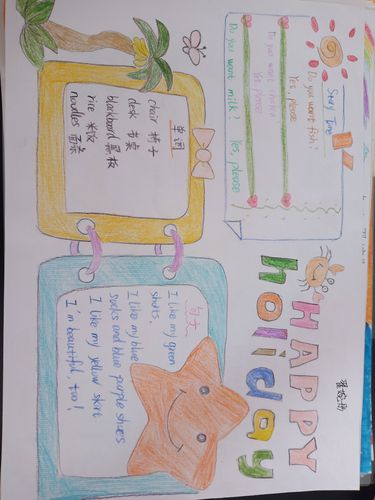 HAPPY
holiday
Story Time
Do you want fish?
Yes, please
Do you want chicken?
Yes please
Do you want milk? Yes, please
单词
chair 椅子
desk 书桌
blackboard 黑板
rice 米饭
noodles 面条
句子
I like my green
I like my blue
socks and blue purple shoes
I like my yellow skirt
I'm beautiful, too!